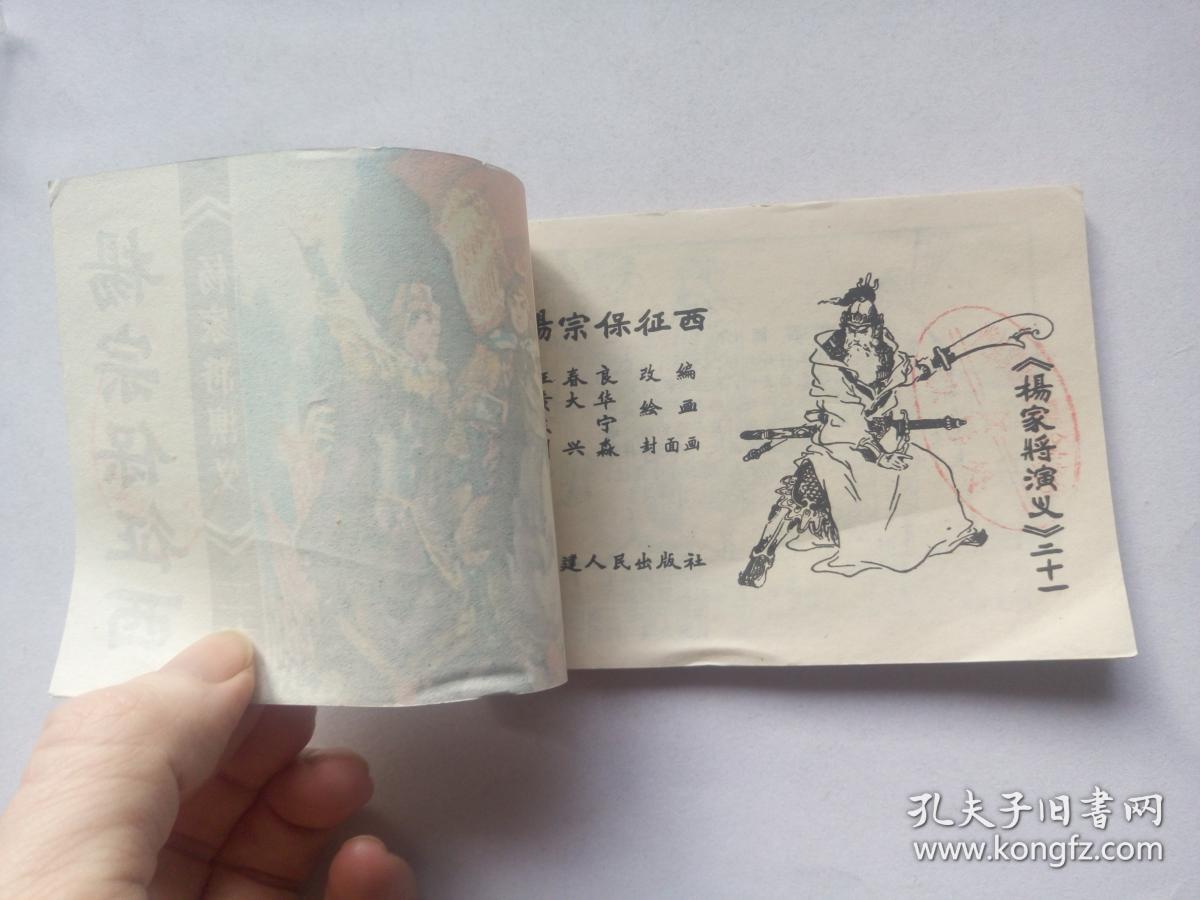 楊宗保征西
春良 改编
大华 绘画
宁
兴淼 封面画
建人民出版社
《楊家将演义》二十一
孔夫子旧书网
www.kongfz.com